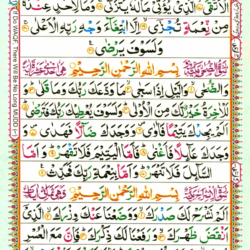 الَّذِىْ يُؤْتِىْ مَالَهٗ يَتَزَكّٰى ۚ وَمَا لِاَحَدٍ عِنْدَهٗ
مِنْ نِّعْمَةٍ تُجْزٰٓى ۙ اِلَّا ابْتِغَآءَ وَجْهِ رَبِّهِ الْاَعْلٰى ۚ
وَلَسَوْفَ يَرْضٰى
بِسْمِ اللّٰهِ الرَّحْمٰنِ الرَّحِيْمِ
وَالضُّحٰى ۙ وَالَّيْلِ اِذَا سَجٰى ۙ مَا وَدَّعَكَ رَبُّكَ وَمَا قَلٰى ؕ وَ
لَلْاٰخِرَةُ خَيْرٌ لَّكَ مِنَ الْاُوْلٰى ؕ وَلَسَوْفَ يُعْطِيْكَ رَبُّكَ فَتَرْضٰى ؕ
اَلَمْ يَجِدْكَ يَتِيْمًا فَاٰوٰى ۪ وَوَجَدَكَ ضَآلًّا فَهَدٰى ۪ وَ
وَجَدَكَ عَآئِلًا فَاَغْنٰى ؕ فَاَمَّا الْيَتِيْمَ فَلَا تَقْهَرْ ؕ وَاَمَّا
السَّآئِلَ فَلَا تَنْهَرْ ؕ وَاَمَّا بِنِعْمَةِ رَبِّكَ فَحَدِّثْ
بِسْمِ اللّٰهِ الرَّحْمٰنِ الرَّحِيْمِ
اَلَمْ نَشْرَحْ لَكَ صَدْرَكَ ۙ وَوَضَعْنَا عَنْكَ وِزْرَكَ ۙ الَّذِىْۤ
اَنْقَضَ ظَهْرَكَ ۙ وَرَفَعْنَا لَكَ ذِكْرَكَ ؕ فَاِنَّ مَعَ الْعُسْرِ